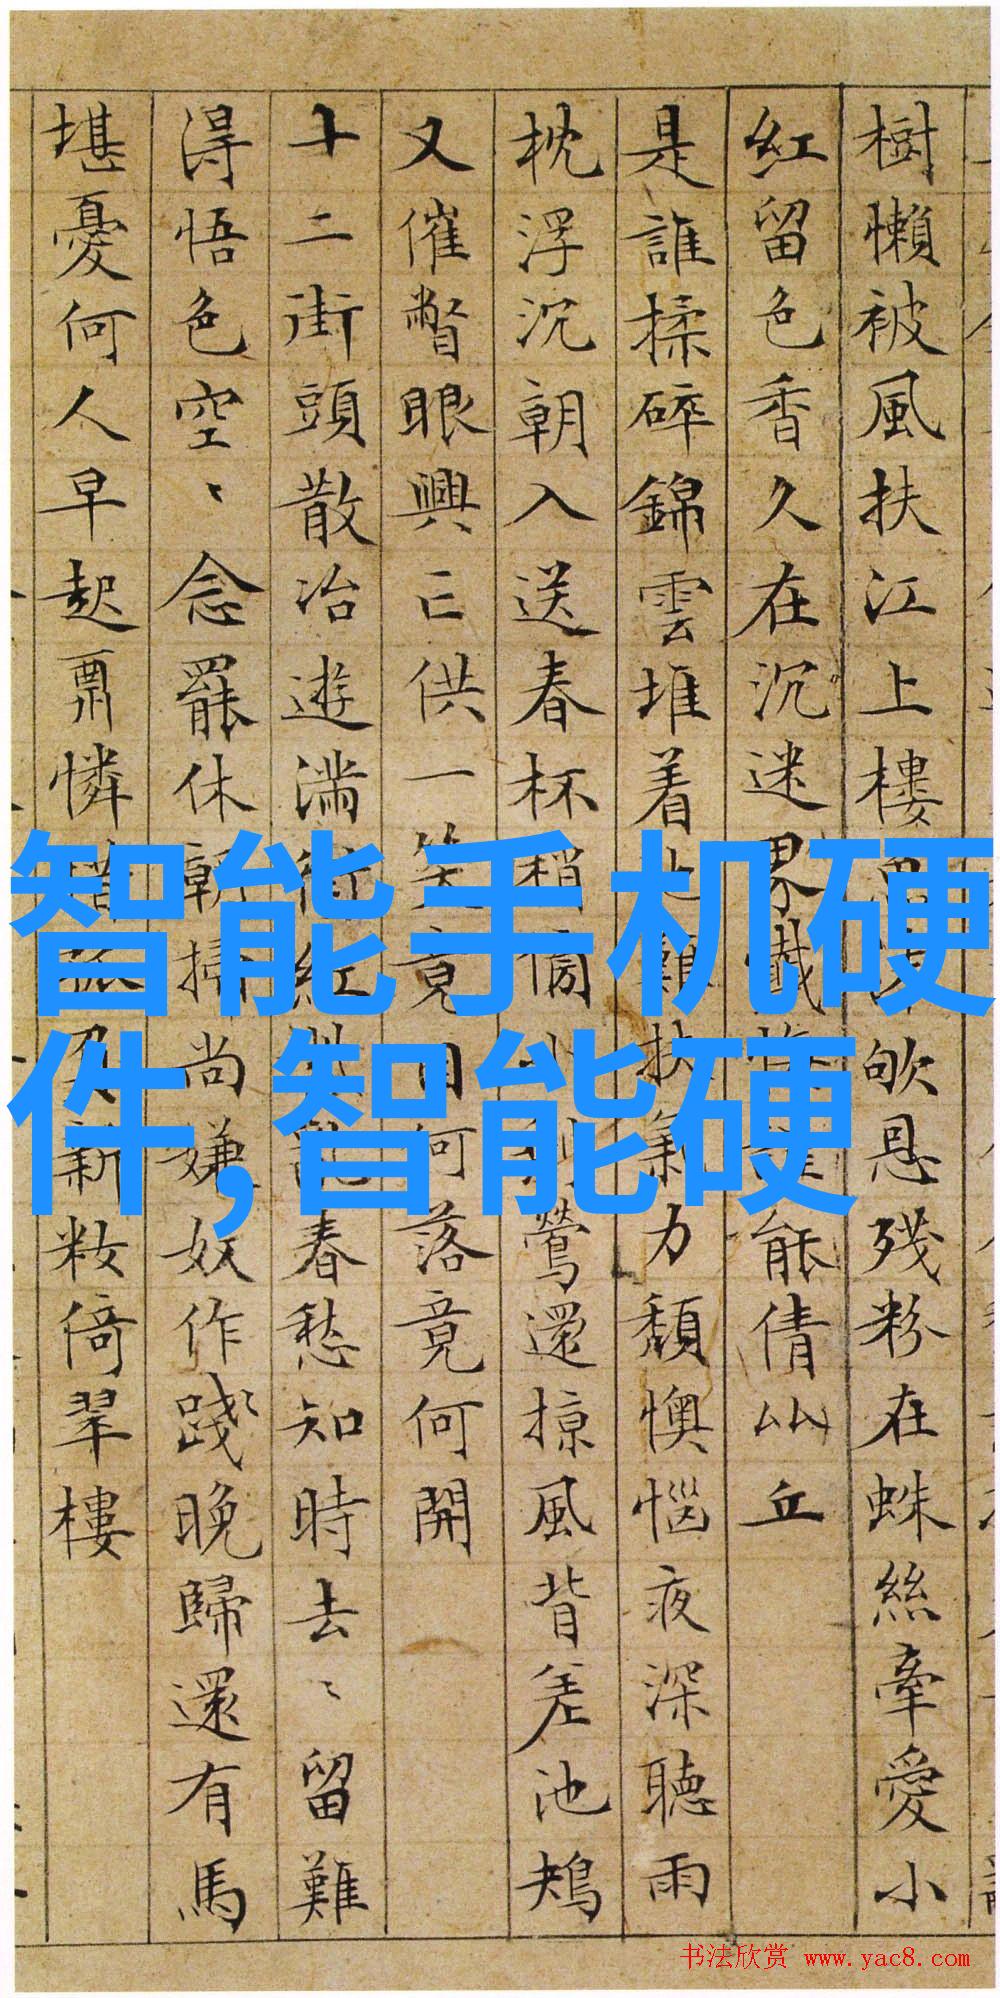 樹懶被風扶江上樓欹恩殘粉在蛛絲牽愛小
紅留色香久在沉迷界懺能倩丘
是誰揉碎錦雲堆着難扶氣力頹懊惱夜深聽雨
枕浮沉朝入送春杯稍鶯還掠風背差池鴂
又催瞥眼興亡供一笑竟日何落竟何開
十二街頭散冶遊滿街紅春愁知時去〻留難
得悟色空〻念罷休朝掃尚嫌奴作踐晚歸還有馬
堪憂何人早起憐惜新妝倚翠樓
智能手机硬
件,智能硬
书法欣赏 www.yac8.com